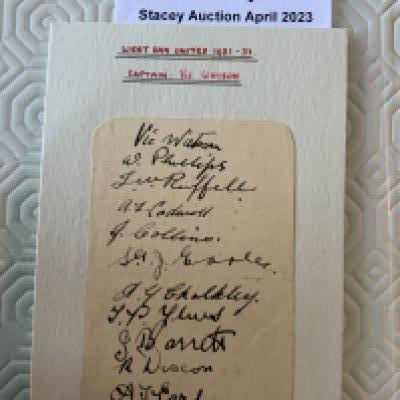 Stacey Auction April 2023
WEST HAM UNITED 1931-32
CAPTAIN: VIC WATSON
Vic Watson
W. Phillips
J. W. Ruffell
A F Cadwell
J. Collins.
A. G Chalkley.
J. Barrett
R Deacon